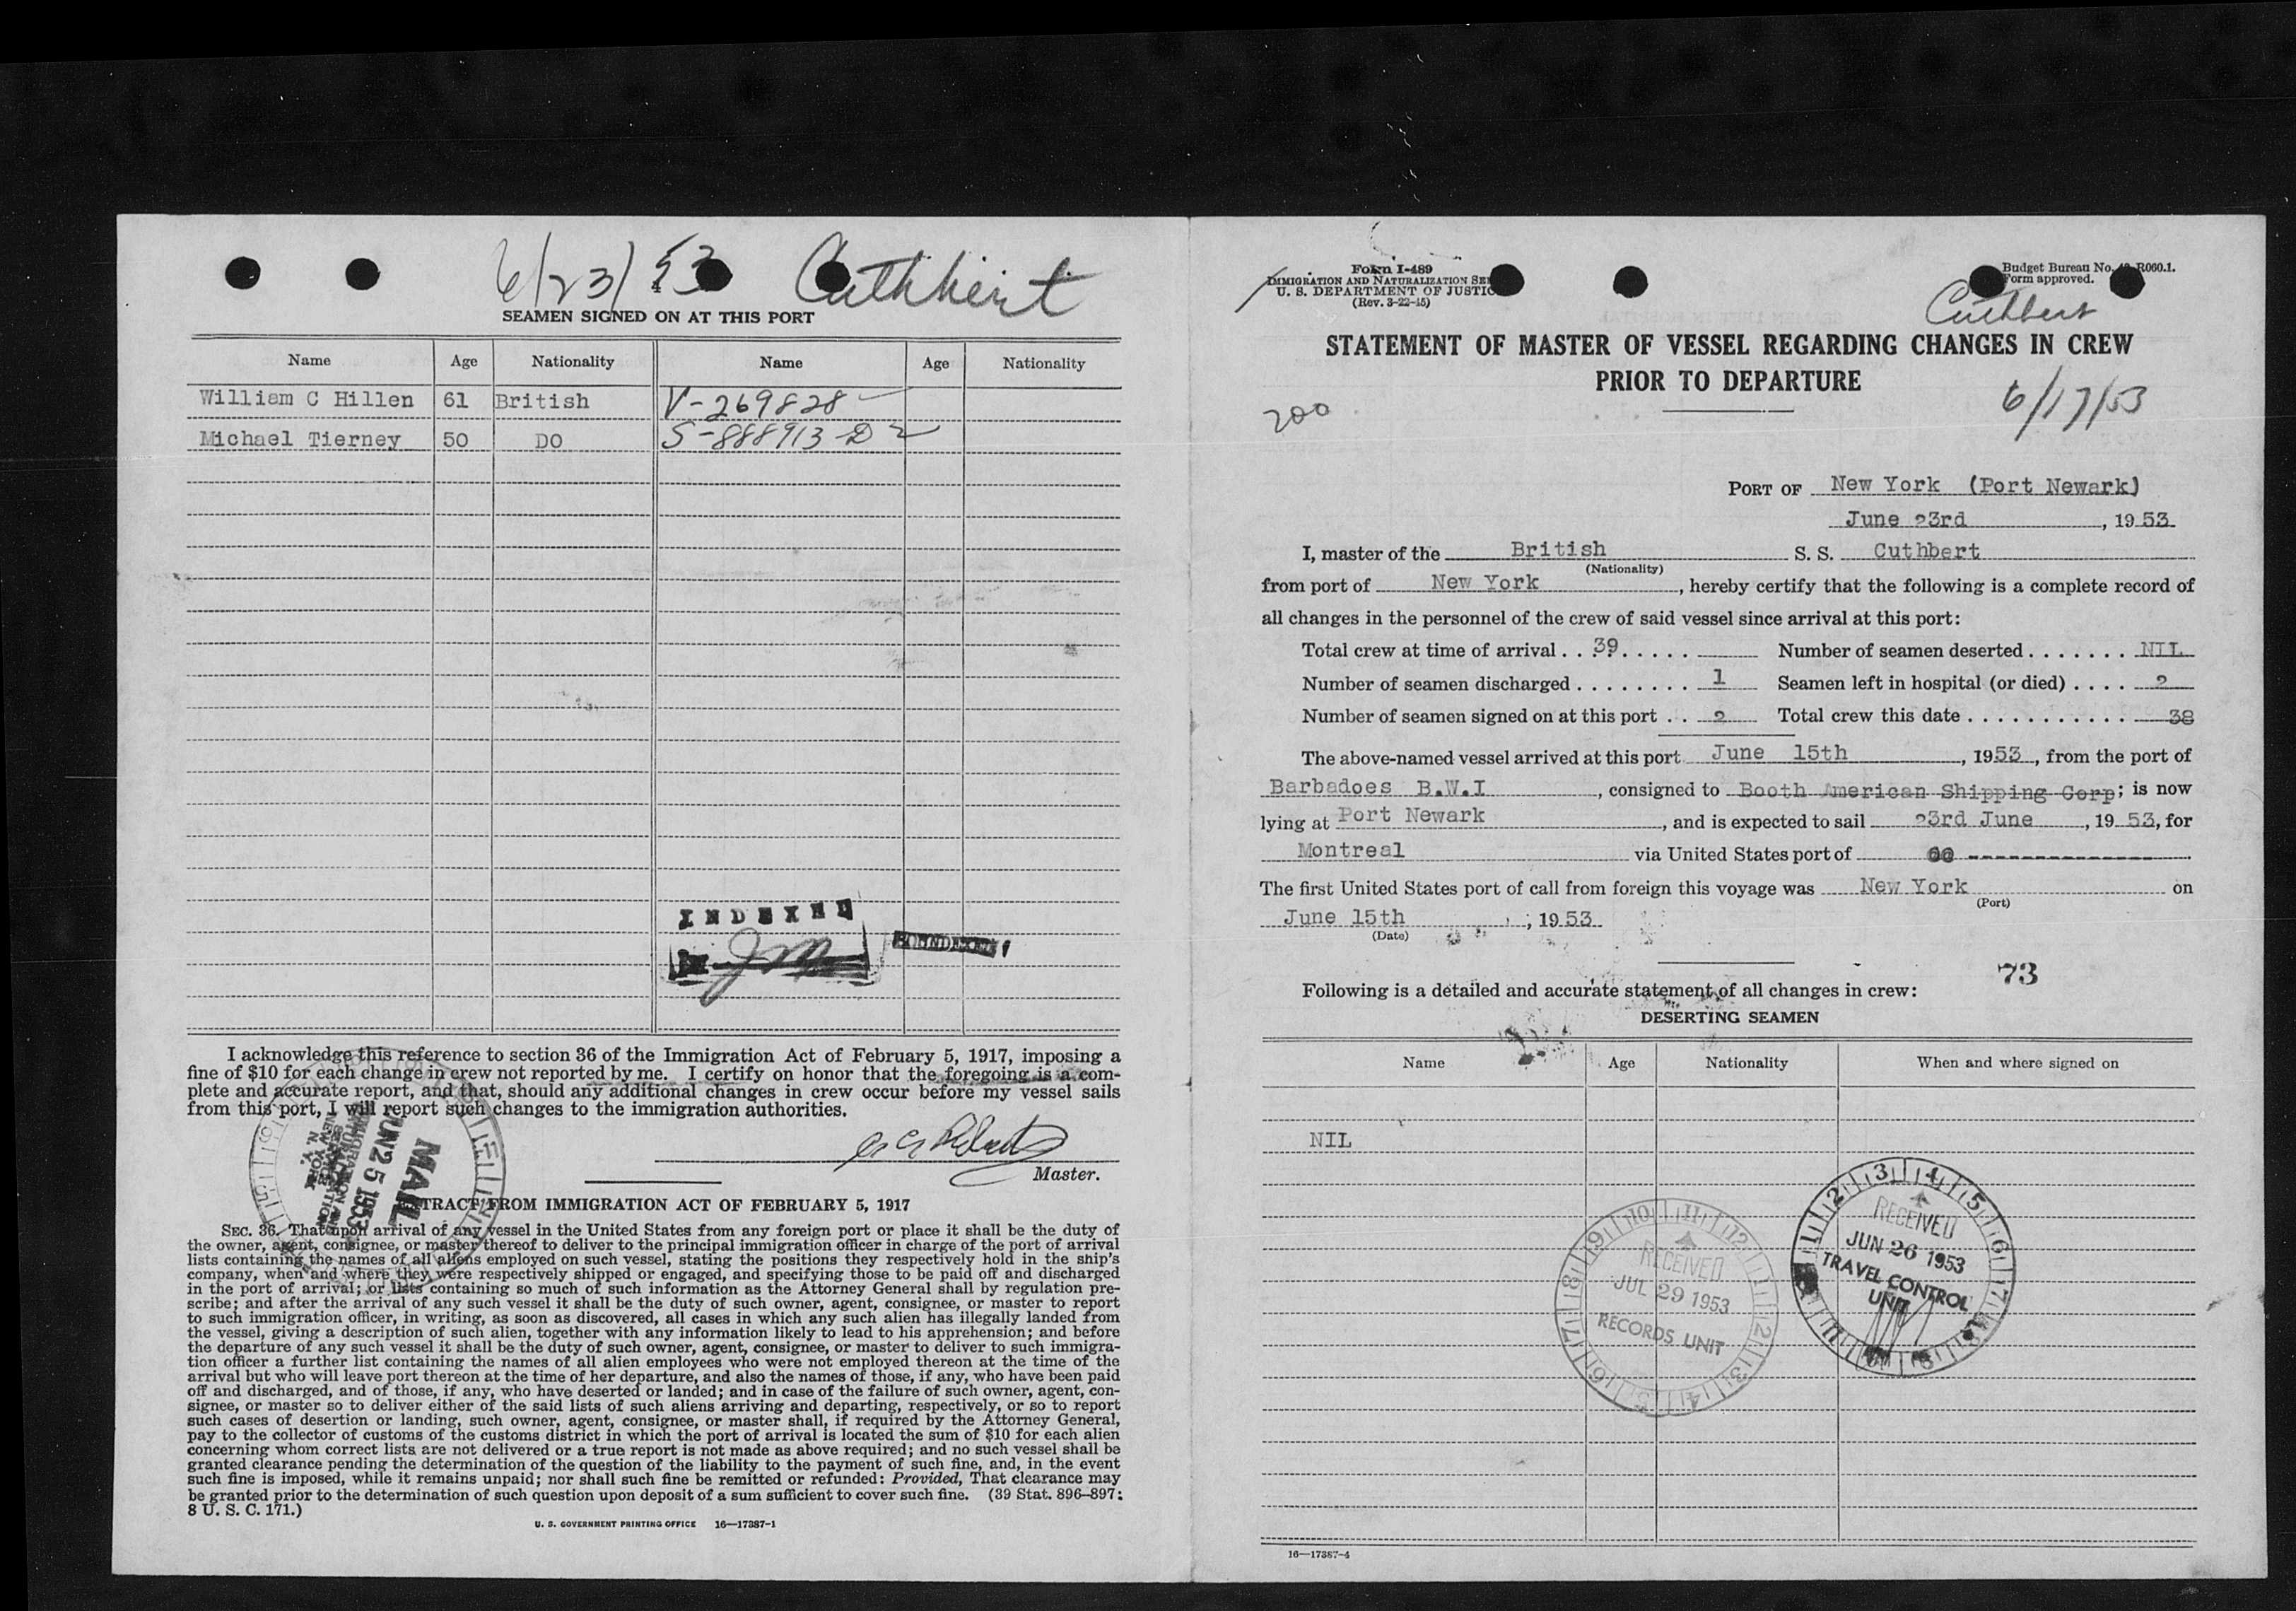 6/23/53 Cuthbert
SEAMEN SIGNED ON AT THIS PORT
Name Age Nationality Name Age Nationality
William C Hillen 61 British V-269828
Michael Tierney 50 DO S-888913-D
INDEXED
I acknowledge this reference to section 36 of the Immigration Act of February 5, 1917, imposing a
fine of $10 for each change in crew not reported by me. I certify on honor that the foregoing is a com-
plete and accurate report, and that, should any additional changes in crew occur before my vessel sails
from this port, I will report such changes to the immigration authorities.
Master.
MAIL
JUN 25 1953
IMMIGRATION AND
NATURALIZATION
SERVICE
NEW YORK
N. Y.
EXTRACT FROM IMMIGRATION ACT OF FEBRUARY 5, 1917
SEC. 36. That upon arrival of any vessel in the United States from any foreign port or place it shall be the duty of
the owner, agent, consignee, or master thereof to deliver to the principal immigration officer in charge of the port of arrival
lists containing the names of all aliens employed on such vessel, stating the positions they respectively hold in the ship's
company, when and where they were respectively shipped or engaged, and specifying those to be paid off and discharged
in the port of arrival; or lists containing so much of such information as the Attorney General shall by regulation pre-
scribe; and after the arrival of any such vessel it shall be the duty of such owner, agent, consignee, or master to report
to such immigration officer, in writing, as soon as discovered, all cases in which any such alien has illegally landed from
the vessel, giving a description of such alien, together with any information likely to lead to his apprehension; and before
the departure of any such vessel it shall be the duty of such owner, agent, consignee, or master to deliver to such immigra-
tion officer a further list containing the names of all alien employees who were not employed thereon at the time of the
arrival but who will leave port thereon at the time of her departure, and also the names of those, if any, who have been paid
off and discharged, and of those, if any, who have deserted or landed; and in case of the failure of such owner, agent, con-
signee, or master so to deliver either of the said lists of such aliens arriving and departing, respectively, or so to report
such cases of desertion or landing, such owner, agent, consignee, or master shall, if required by the Attorney General,
pay to the collector of customs of the customs district in which the port of arrival is located the sum of $10 for each alien
concerning whom correct lists are not delivered or a true report is not made as above required; and no such vessel shall be
granted clearance pending the determination of the question of the liability to the payment of such fine, and, in the event
such fine is imposed, while it remains unpaid; nor shall such fine be remitted or refunded: Provided, That clearance may
be granted prior to the determination of such question upon deposit of a sum sufficient to cover such fine. (39 Stat. 896-897;
8 U. S. C. 171.)
U. S. GOVERNMENT PRINTING OFFICE 16—17387-1
Form I-489
IMMIGRATION AND NATURALIZATION SE
U. S. DEPARTMENT OF JUSTIC
(Rev. 3-22-45)
Budget Bureau No. R060.1.
Form approved.
Cuthbert
STATEMENT OF MASTER OF VESSEL REGARDING CHANGES IN CREW
PRIOR TO DEPARTURE
200
6/17/53
PORT OF New York (Port Newark)
June 23rd, 1953
I, master of the British S. S. Cuthbert
(Nationality)
from port of New York, hereby certify that the following is a complete record of
all changes in the personnel of the crew of said vessel since arrival at this port:
Total crew at time of arrival . . 39 . . . . . Number of seamen deserted . . . . . . . NIL
Number of seamen discharged . . . . . . . . 1 Seamen left in hospital (or died) . . . . 2
Number of seamen signed on at this port . . 2 Total crew this date . . . . . . . . . . . . 38
The above-named vessel arrived at this port June 15th, 1953, from the port of
Barbadoes B.W.I, consigned to Booth American Shipping Corp; is now
lying at Port Newark, and is expected to sail 23rd June, 1953, for
Montreal via United States port of
The first United States port of call from foreign this voyage was New York on
(Port)
June 15th, 1953
(Date)
73
Following is a detailed and accurate statement of all changes in crew:
DESERTING SEAMEN
Name Age Nationality When and where signed on
NIL
RECEIVED
JUL 29 1953
RECORDS UNIT
RECEIVED
JUN 26 1953
TRAVEL CONTROL
UNIT
16—17387-4